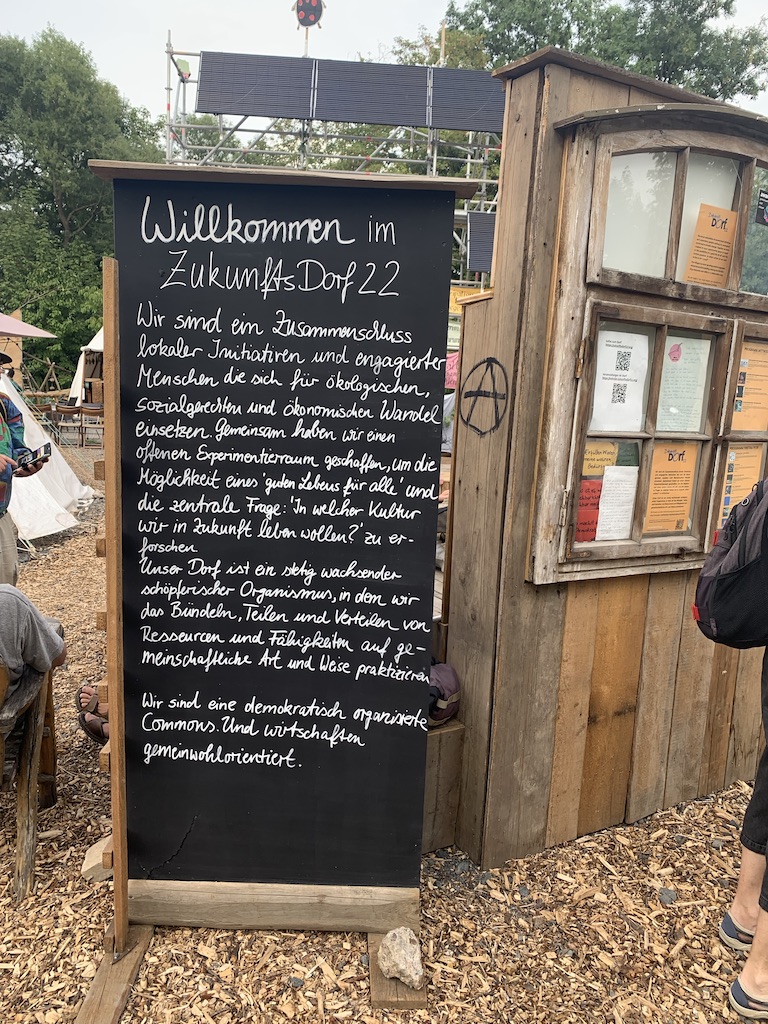 Willkommen im
ZukunftsDorf 22
Wir sind ein Zusammenschluss
lokaler Initiativen und engagierter
Menschen die sich für ökologischen,
sozialgerechten und ökonomischen Wandel
einsetzen. Gemeinsam haben wir einen
offenen Experimentierraum geschaffen, um die
Möglichkeit eines 'guten Lebens für alle' und
die zentrale Frage: 'In welcher Kultur
wir in Zukunft leben wollen?' zu er-
forschen
Unser Dorf ist ein stetig wachsender
schöpferischer Organismus, in dem wir
das Bündeln, Teilen und Verteilen von
Ressourcen und Fähigkeiten auf ge-
meinschaftliche Art und Weise praktizieren
Wir sind eine demokratisch organisierte
Commons. Und wirtschaften
gemeinwohlorientiert.
DORF
DORF